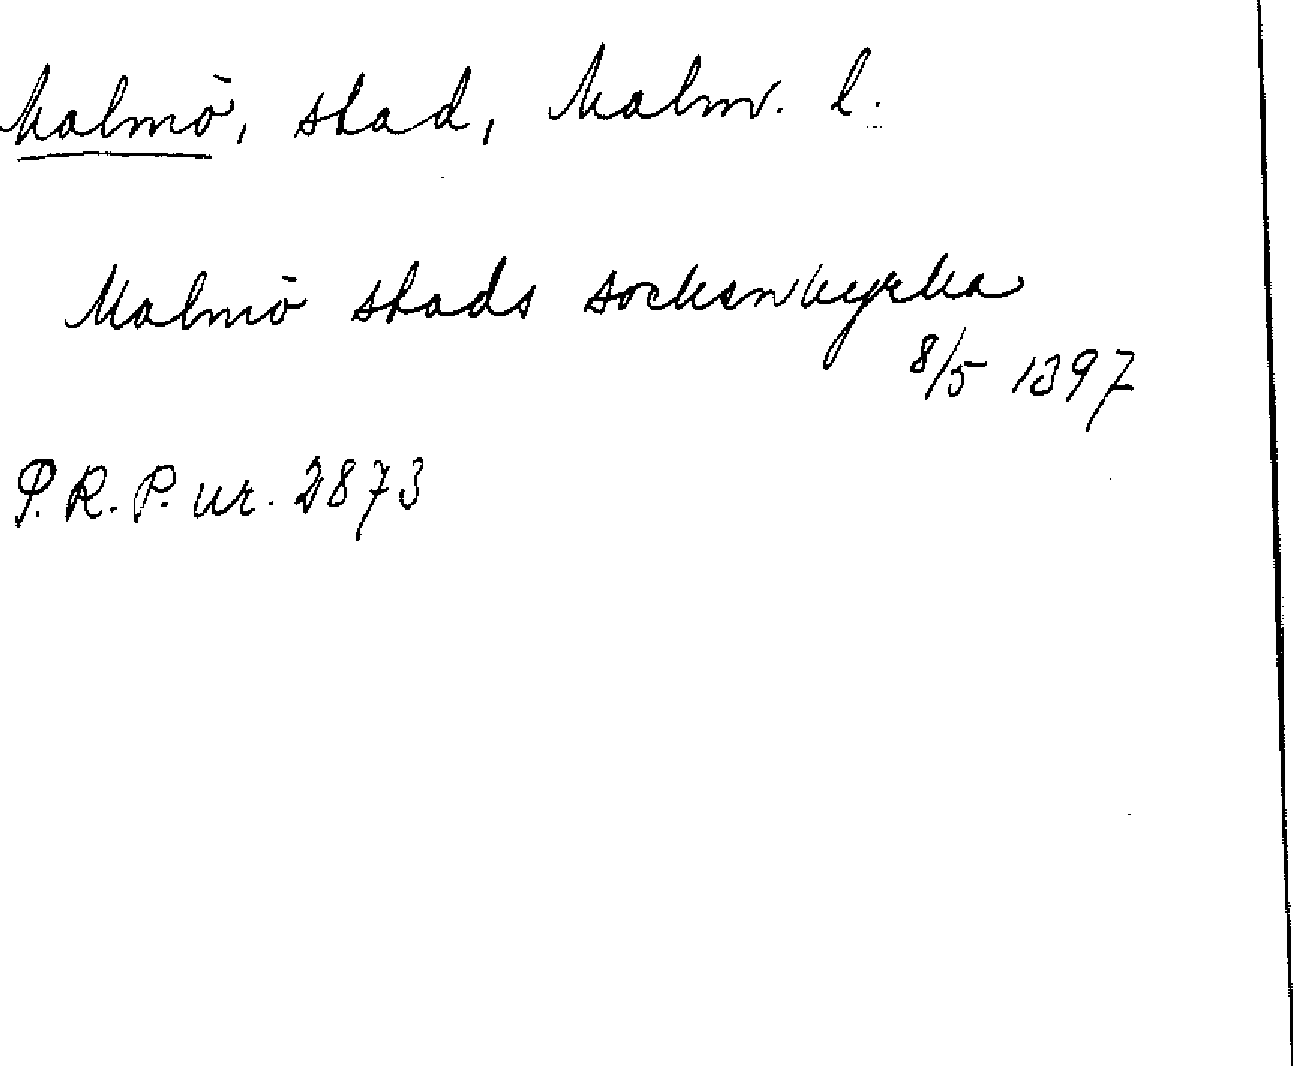 Malmö, stad, Malm. l.
Malmö stads sockenkyrka
8/5 1397
P.R.P. nr. 2873